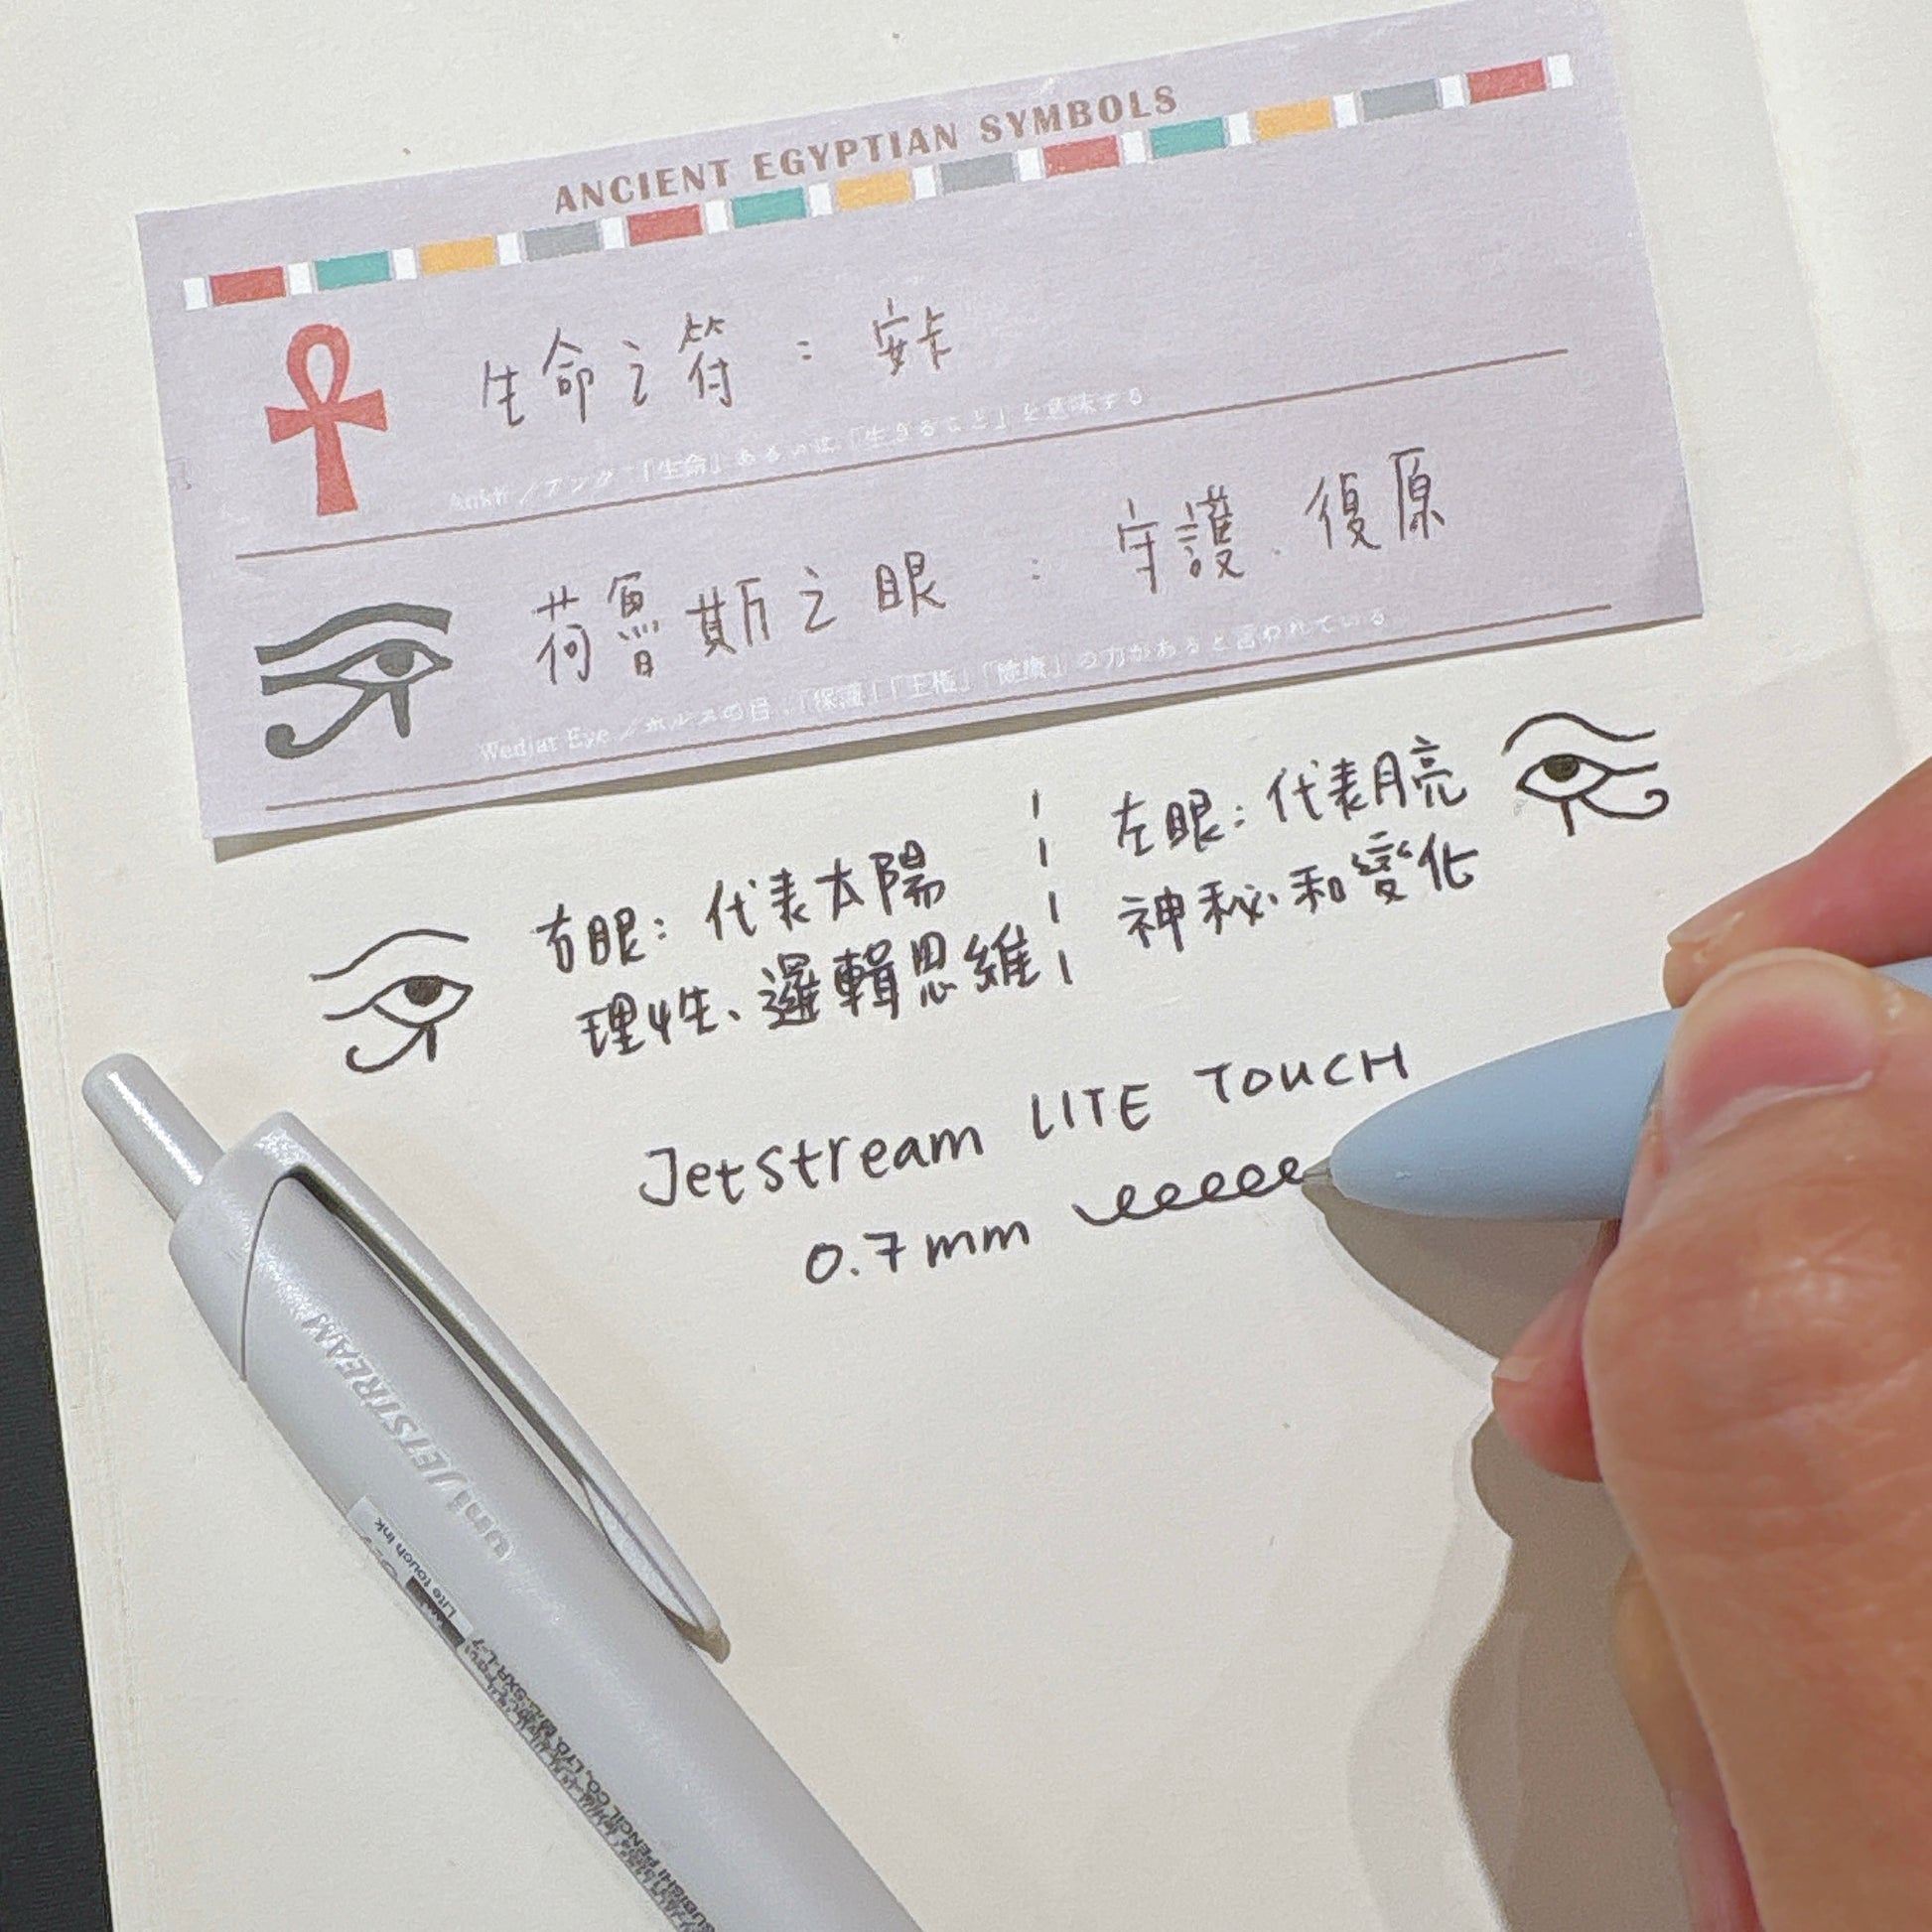 ANCIENT EGYPTIAN SYMBOLS
生命之符：安卡
Ankh／アンク「生命」あるいは「生きること」を意味する
荷魯斯之眼：守護、復原
Wedjat Eye／ホルスの目 「保護」「王権」「健康」の力があると言われている
右眼：代表太陽
理性、邏輯思維
左眼：代表月亮
神秘和變化
Jetstream LITE TOUCH
0.7mm
uni JETSTREAM
Lite touch ink
SXR-L-7
MITSUBISHI PENCIL CO., LTD.